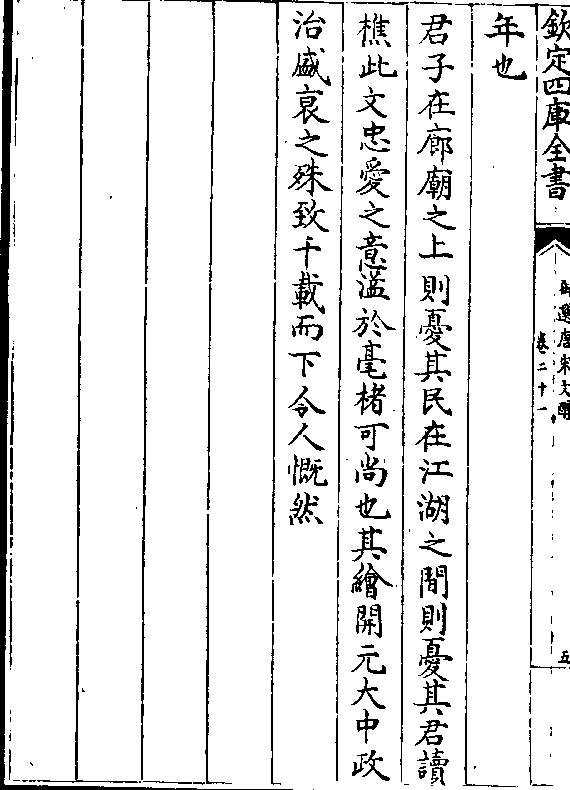 欽定四庫全書
御選唐宋文醇
卷二十一
五
年也
君子在廊廟之上則憂其民在江湖之間則憂其君讀
樵此文忠愛之意溢於毫楮可尚也其繪開元大中政
治盛衰之殊致千載而下令人慨然